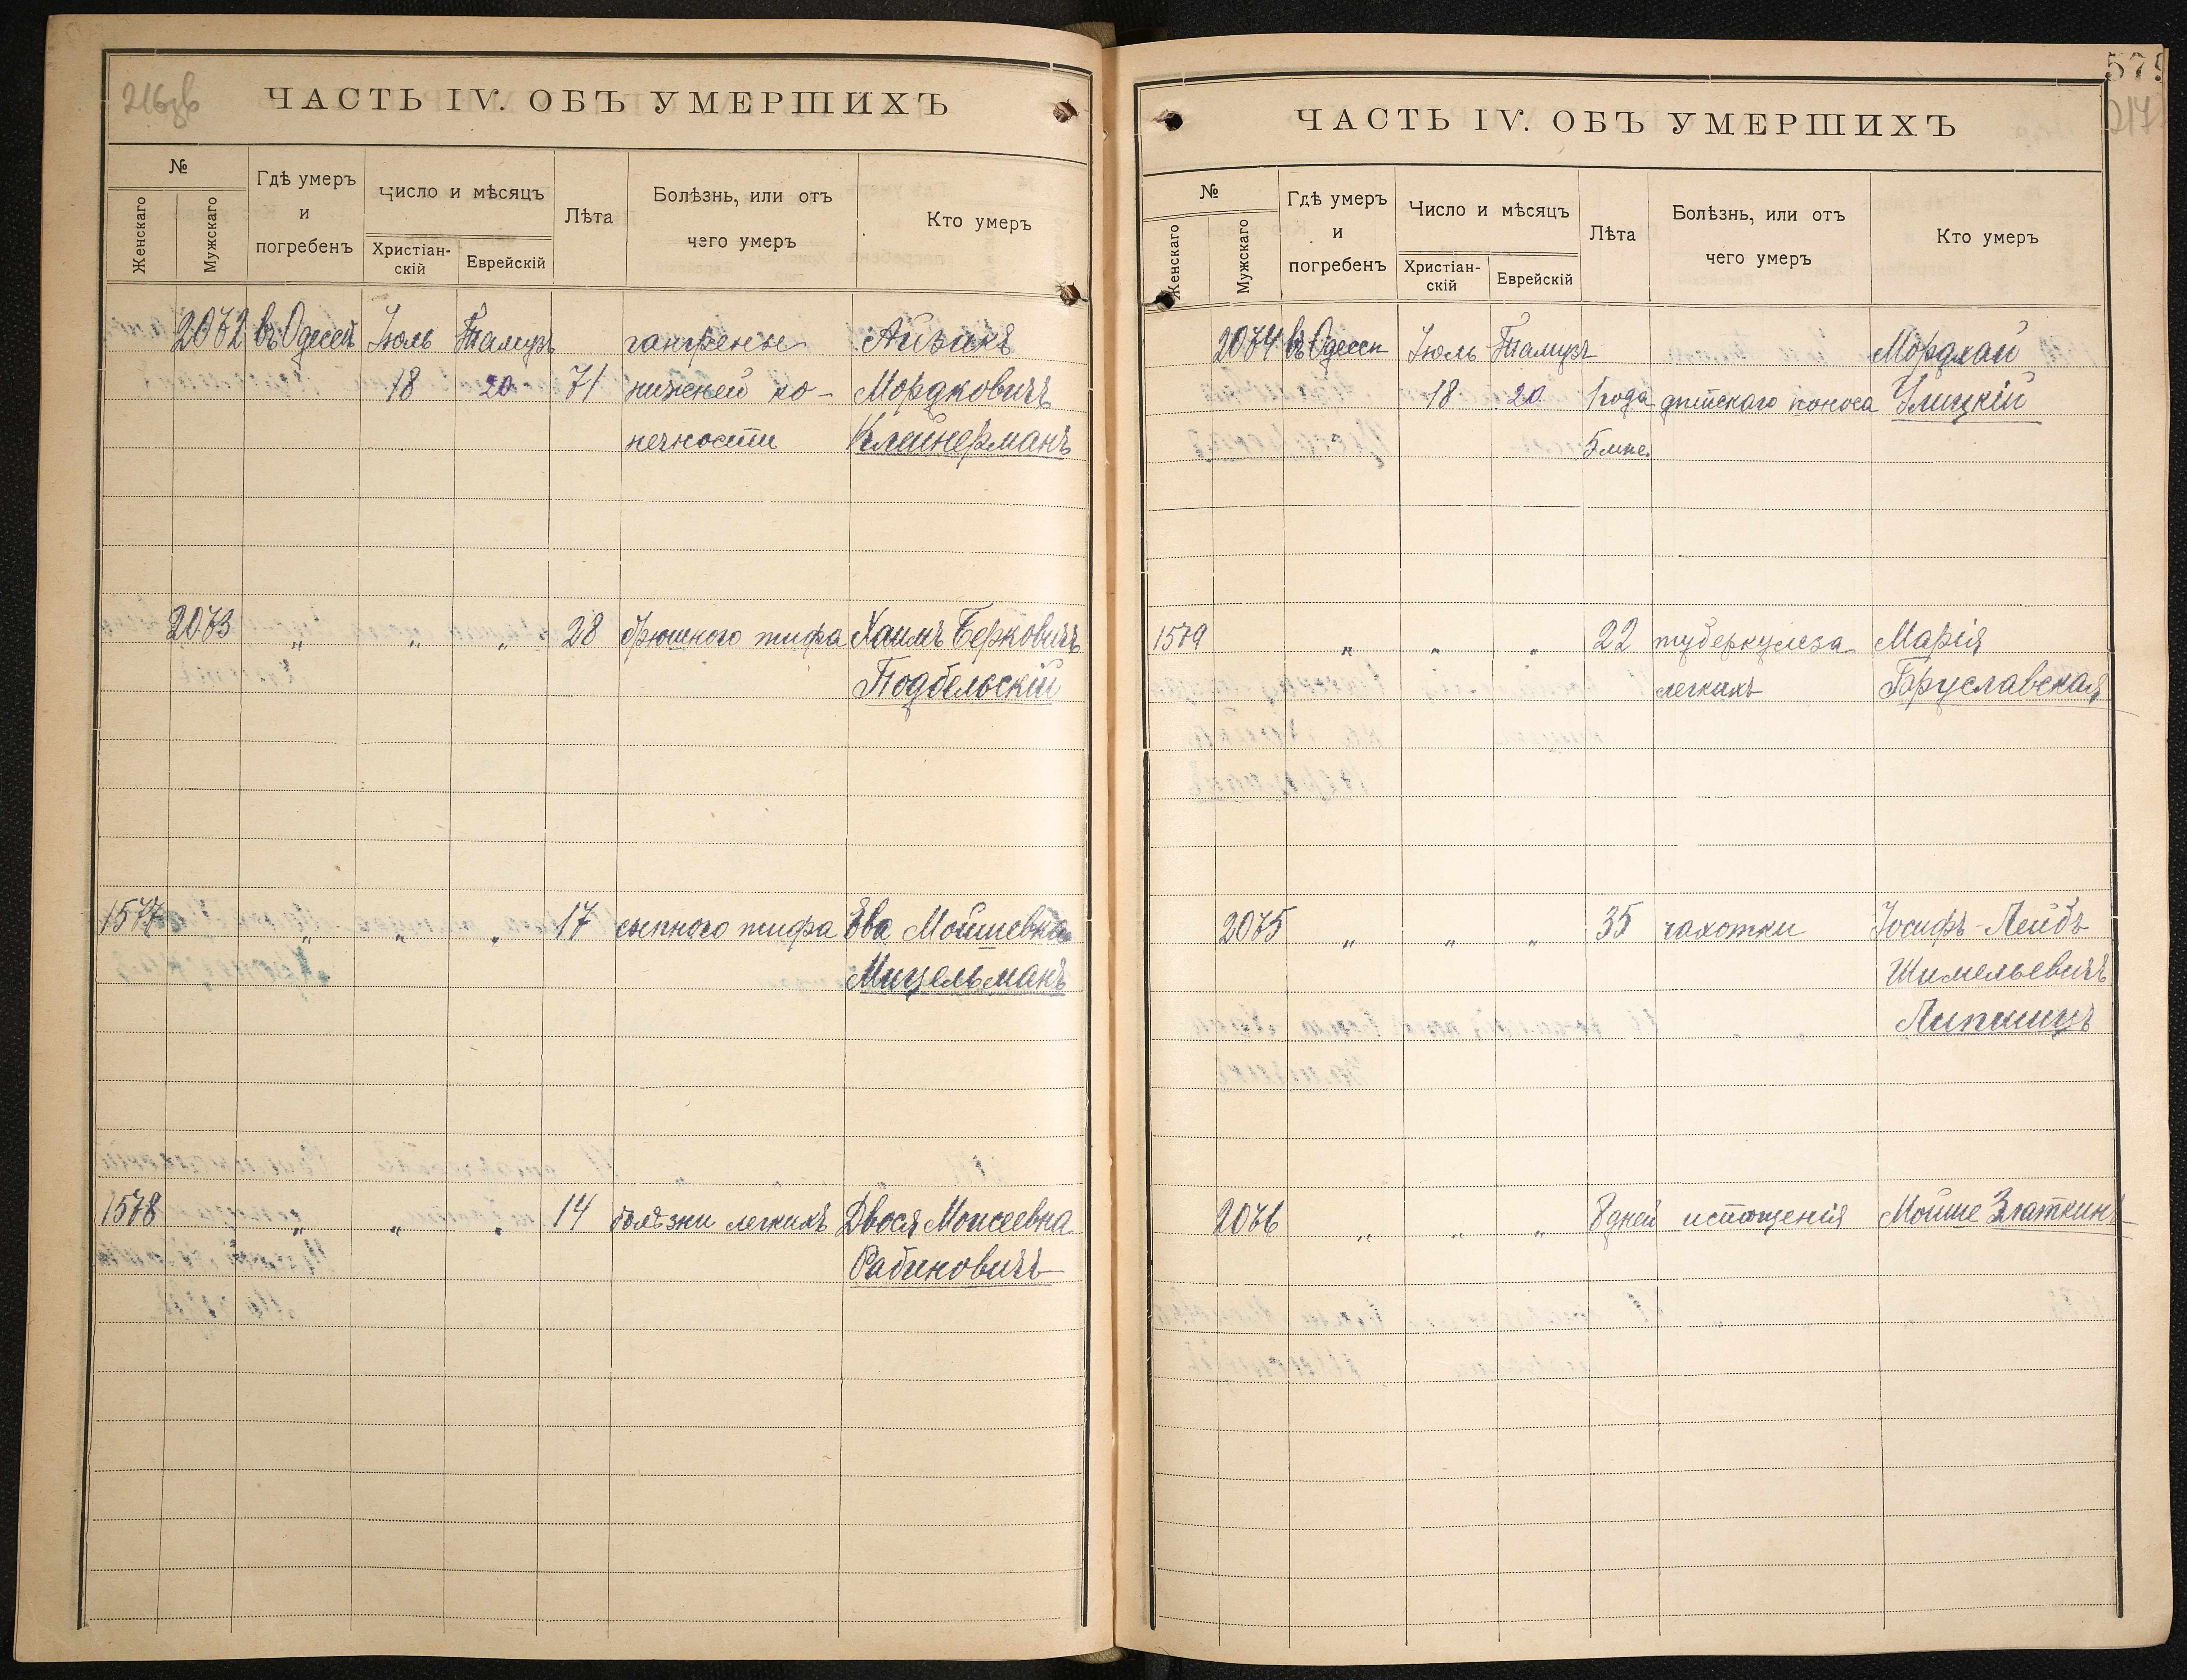 216зв
ЧАСТЬ IV. ОБЪ УМЕРШИХЪ
№
Женскаго
Мужскаго
Гдѣ умеръ
и
погребенъ
Число и мѣсяцъ
Христіан-
скій
Еврейскій
Лѣта
Болѣзнь, или отъ
чего умеръ
Кто умеръ
2072 въ Одессѣ Іюль Тамузъ гангрены Айзакъ
18 20 71 нижней ко- Мордковичъ
нечности Клейнерманъ
2073 „ „ „ 28 брюшного тифа Хаимъ Берковичъ
Подбельскій
1577 „ „ „ 17 сыпного тифа Ева Мойшевна
Мицельманъ
1578 „ „ „ 14 болѣзни легкихъ Двося Моисеевна
Рабиновичъ
579
217
ЧАСТЬ IV. ОБЪ УМЕРШИХЪ
№
Женскаго
Мужскаго
Гдѣ умеръ
и
погребенъ
Число и мѣсяцъ
Христіан-
скій
Еврейскій
Лѣта
Болѣзнь, или отъ
чего умеръ
Кто умеръ
2074 въ Одессѣ Іюль Тамузъ Мордхай
18 20 1 года дѣтскаго поноса Улицкій
5 мѣс.
1579 „ „ „ 22 туберкулеза Марія
легкихъ Бруславская
2075 „ „ „ 35 чахотки Іосифъ-Лейбъ
Шимельевичъ
Липшицъ
2076 „ „ „ 8 дней истощенія Мойше Златкинъ